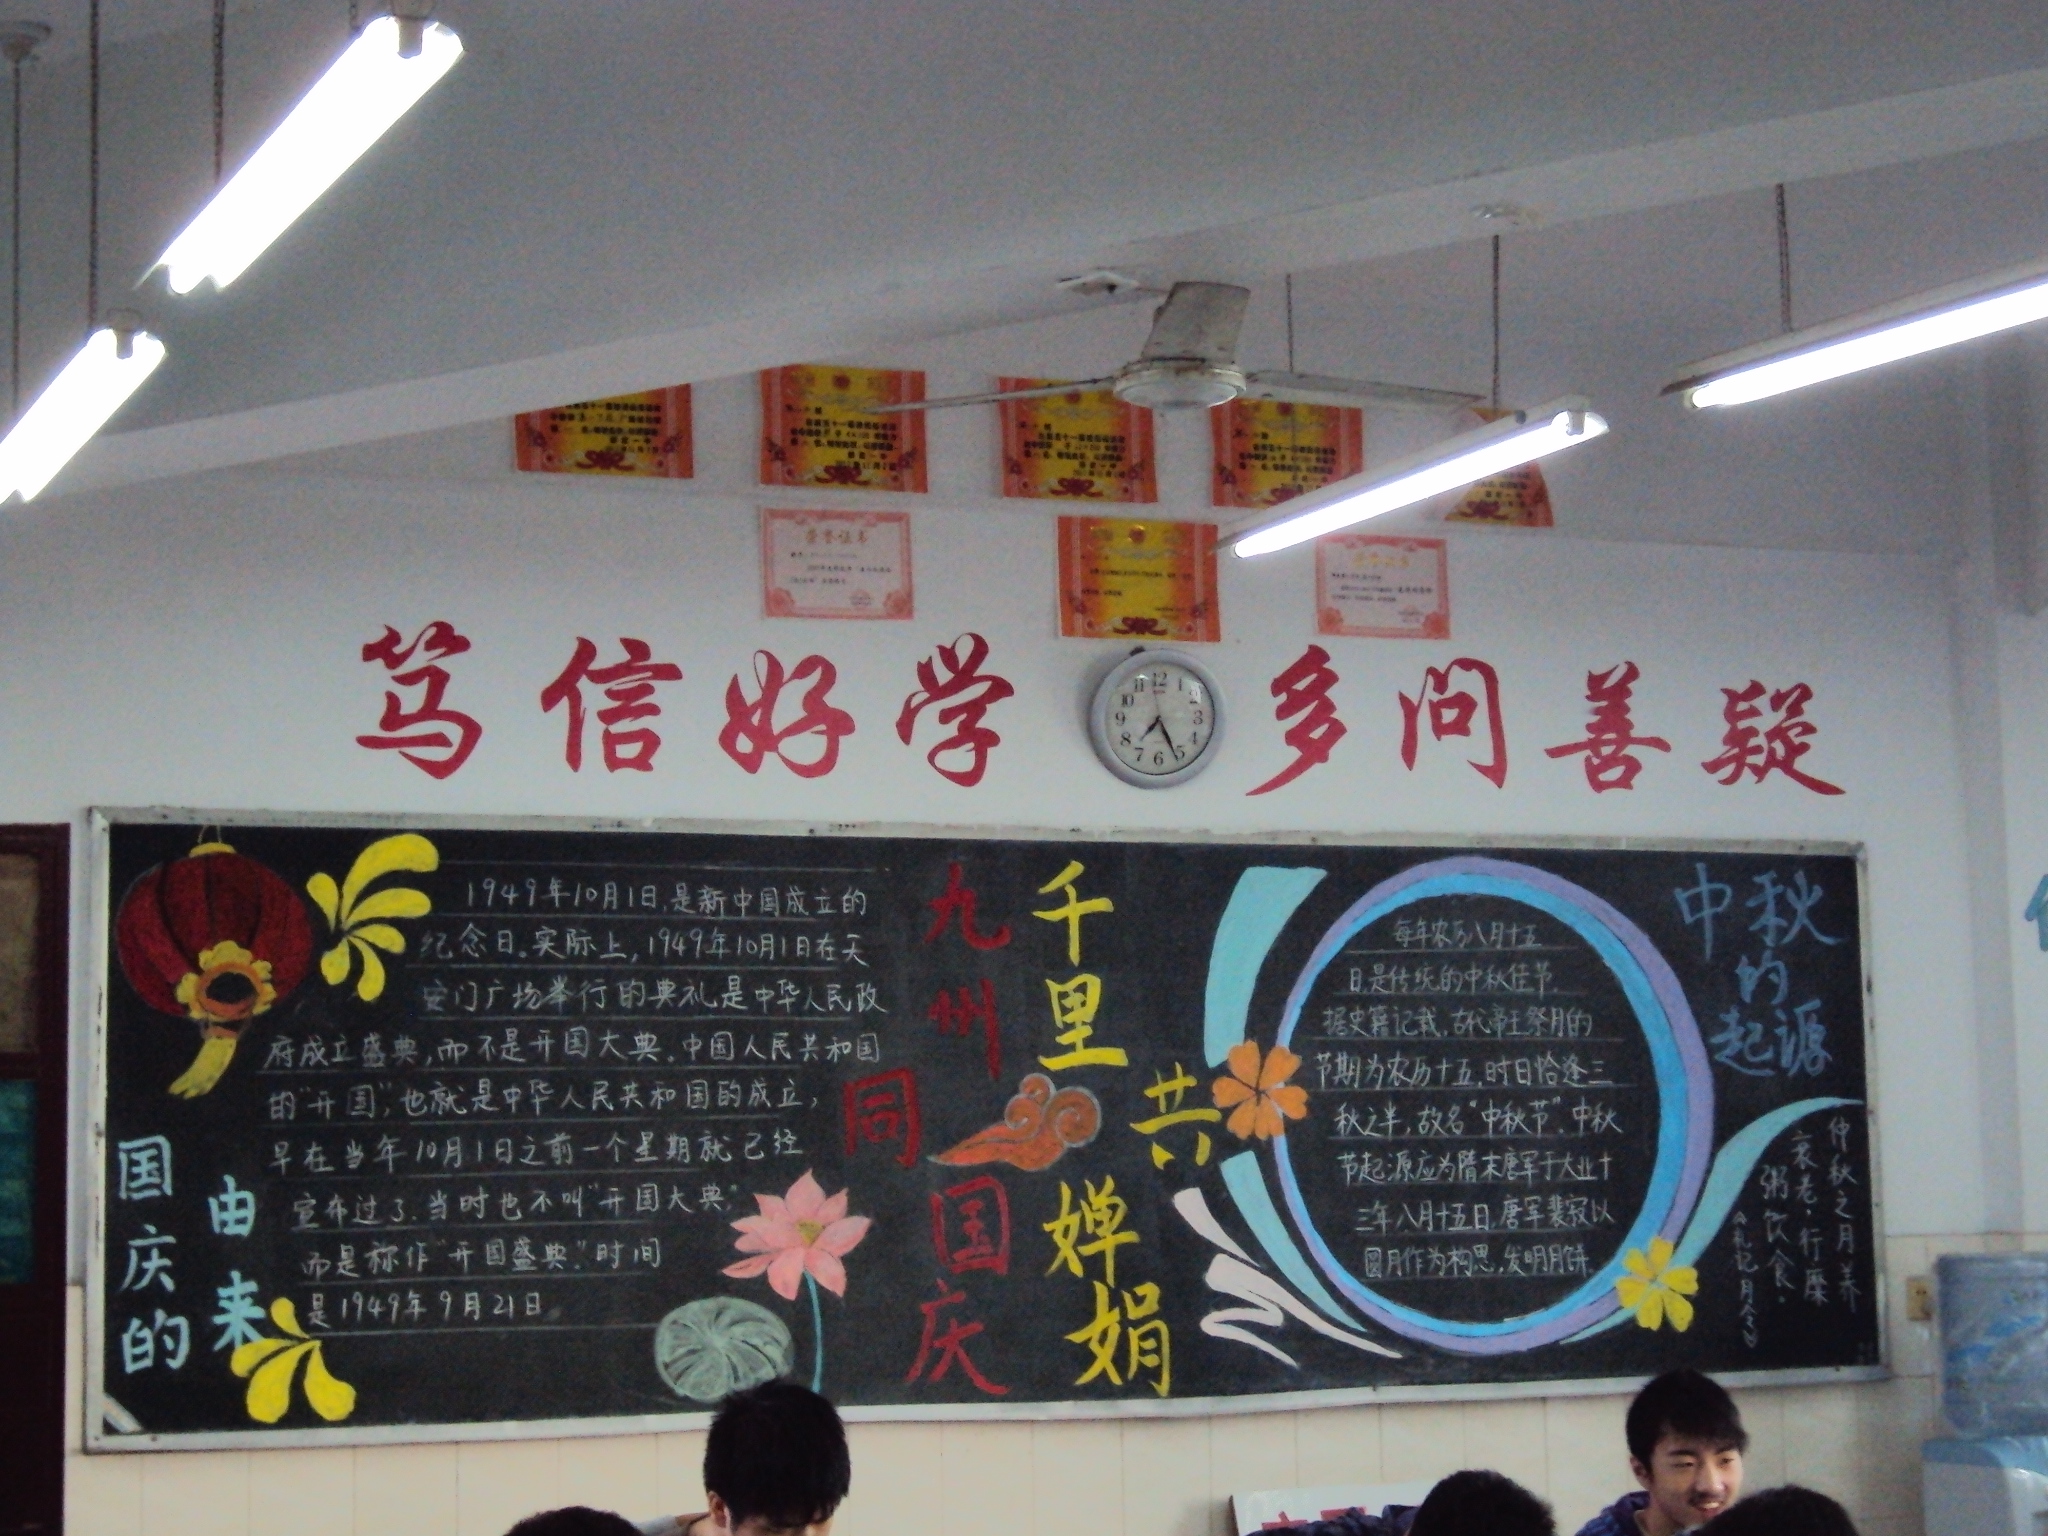 荣誉证书
笃信好学 多问善疑
11 12 1
10 2
9 3
8 4
7 6 5
国庆的
由来
1949年10月1日,是新中国成立的
纪念日。实际上,1949年10月1日在天
安门广场举行的典礼是中华人民政
府成立盛典,而不是开国大典。中国人民共和国
的“开国”,也就是中华人民共和国的成立,
早在当年10月1日之前一个星期就已经
宣布过了。当时也不叫“开国大典”
而是称作“开国盛典”。时间
是1949年9月21日
九州
同
国庆
千里
共
婵娟
每年农历八月十五
日,是传统的中秋佳节。
据史籍记载,古代帝王祭月的
节期为农历十五,时日恰逢三
秋之半,故名“中秋节”。中秋
节起源应为隋末唐军于大业十
三年八月十五日,唐军裴寂以
圆月作为构思,发明月饼.
中秋
的
起源
仲秋之月养
衰老,行糜
粥饮食。
《礼记月令》